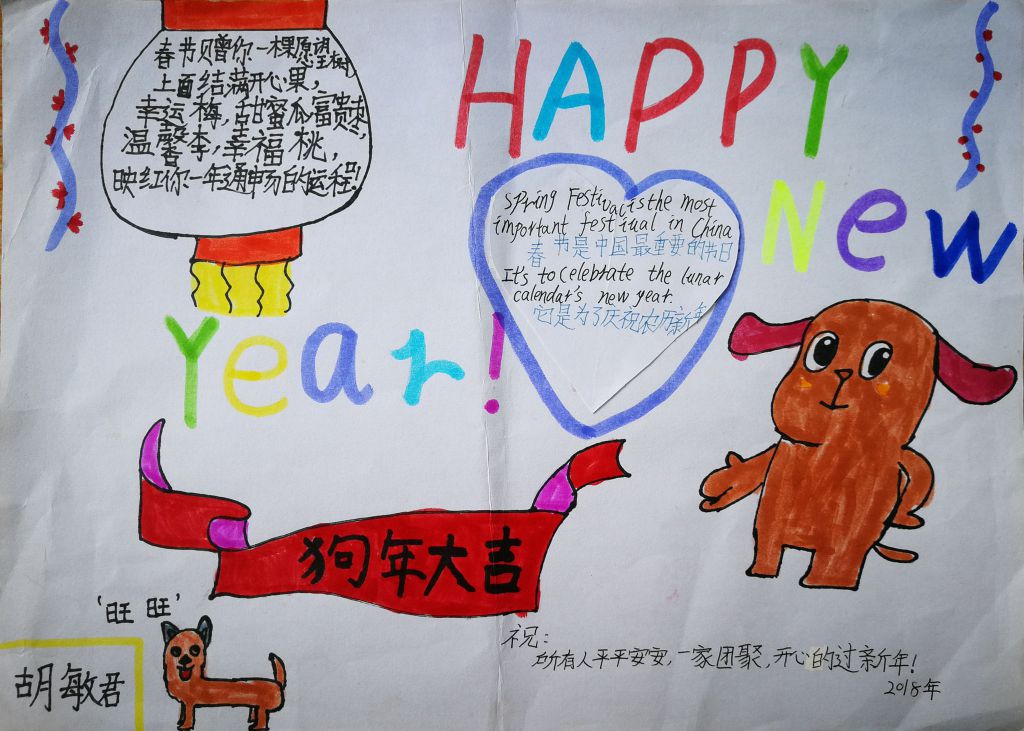 春节贝曾你一棵愿望树
上面结满开心果,
幸运梅,甜蜜瓜富贵枣,
温馨李,幸福桃,
映红你一年通串一日的运程!
HAPPY
New
Year!
Spring Festival is the most
important festival in China
春节是中国最重要的节日
It's to celebrate the lunar
calendar's new year.
它是为了庆祝农历新年
狗年大吉
'旺旺'
胡敏君
祝:
所有人平平安安,一家团聚,开心的过新年!
2018年